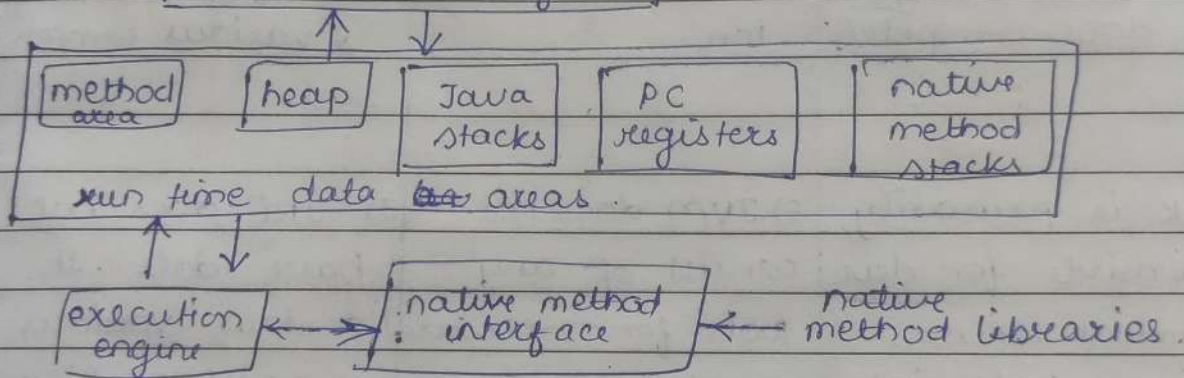 method area
heap
Java stacks
PC registers
native method stacks
run time data areas.
execution engine
native method interface
native method libraries.